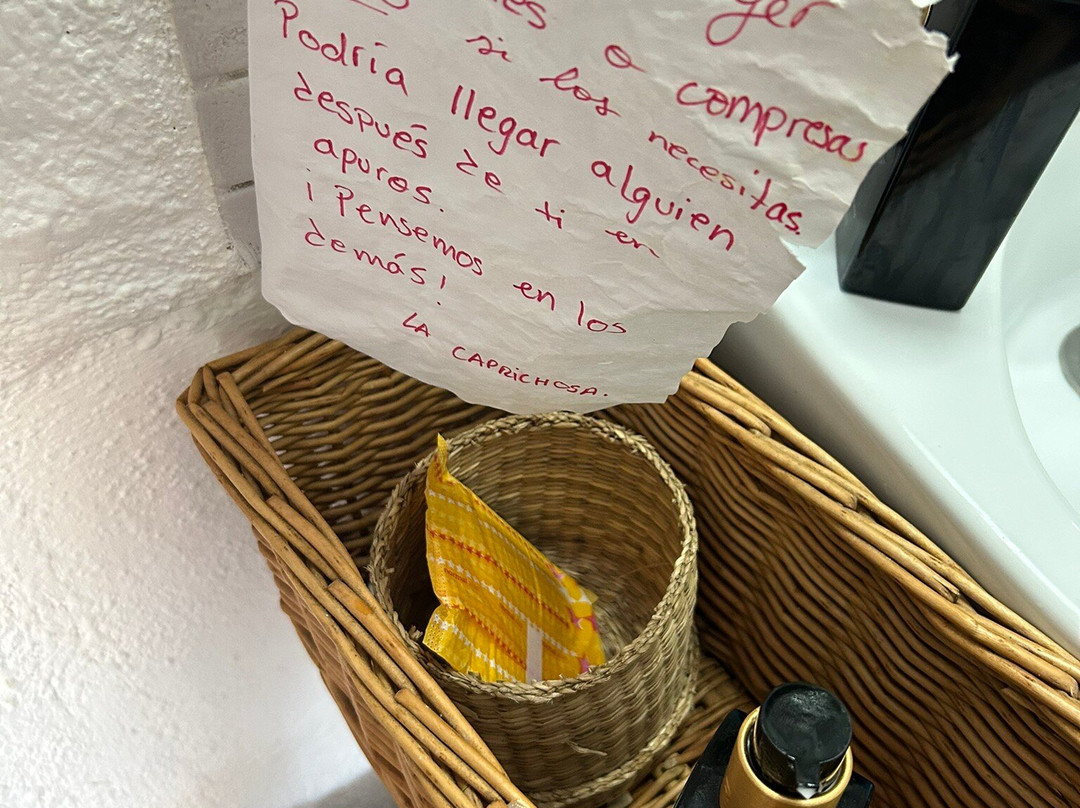 ger
o compresas
si los necesitas.
Podría llegar alguien
después de ti en
apuros.
¡Pensemos en los
demás!
LA CAPRICHOSA.